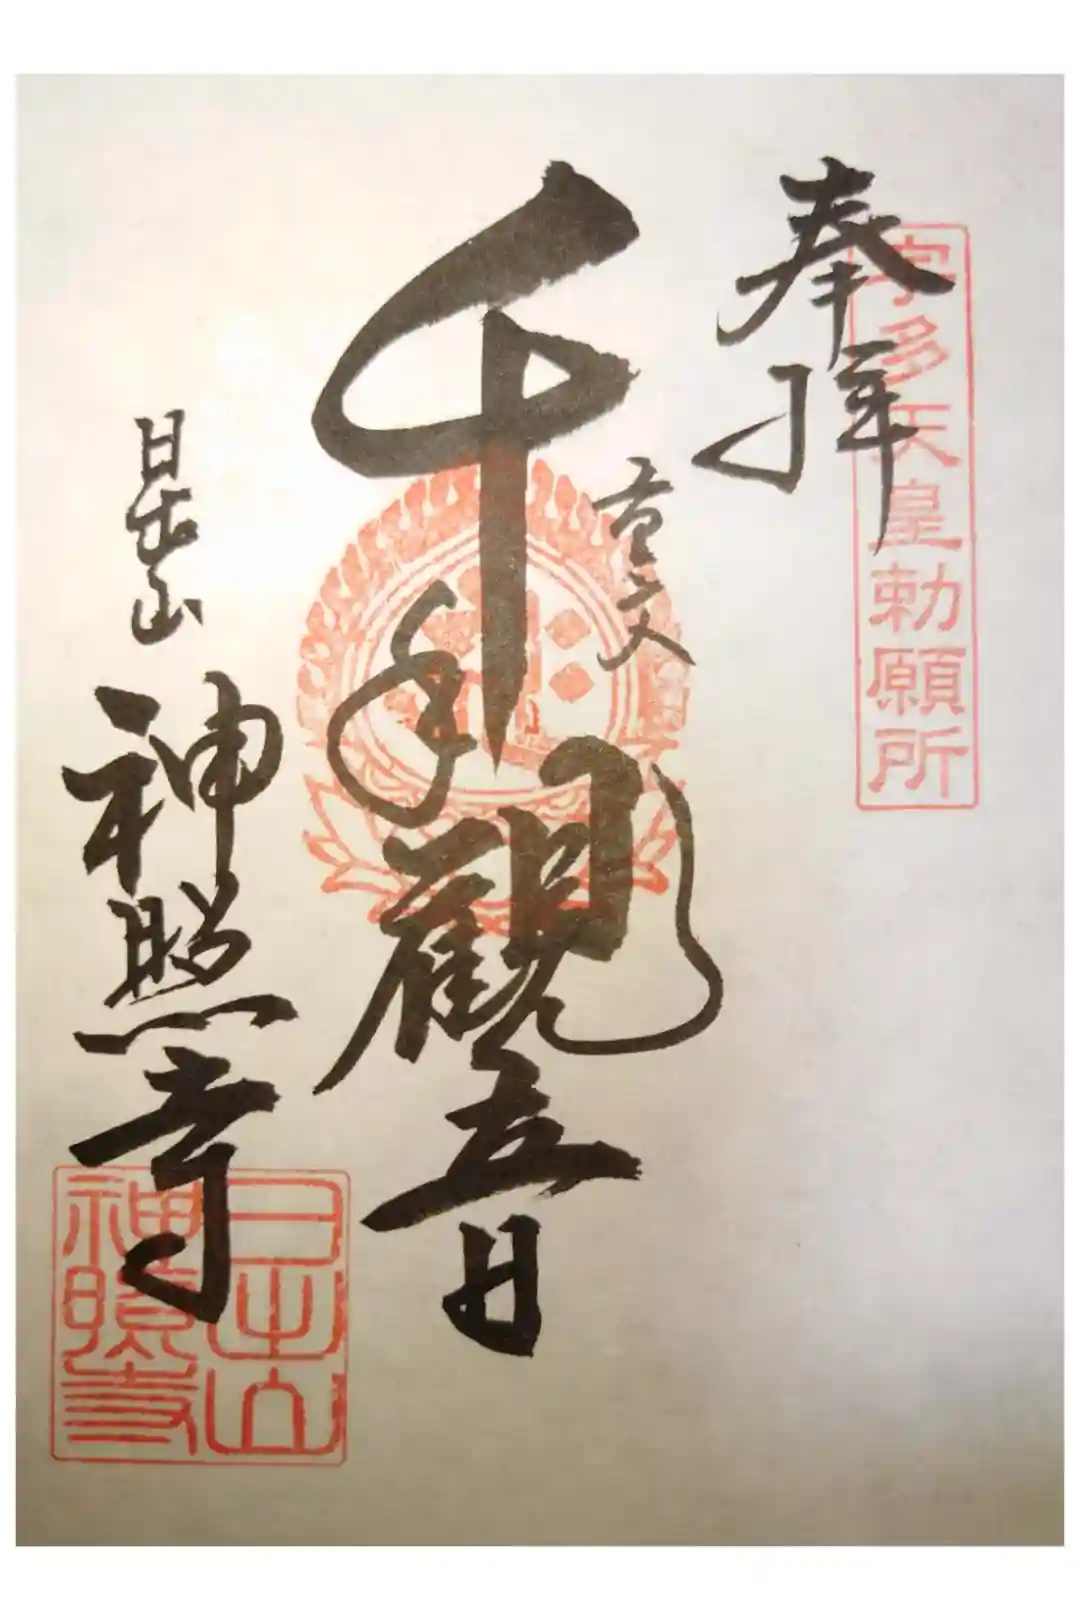 奉拝
宇多天皇勅願所
重文
千手觀音
日出山
神照寺
日出山
神照寺